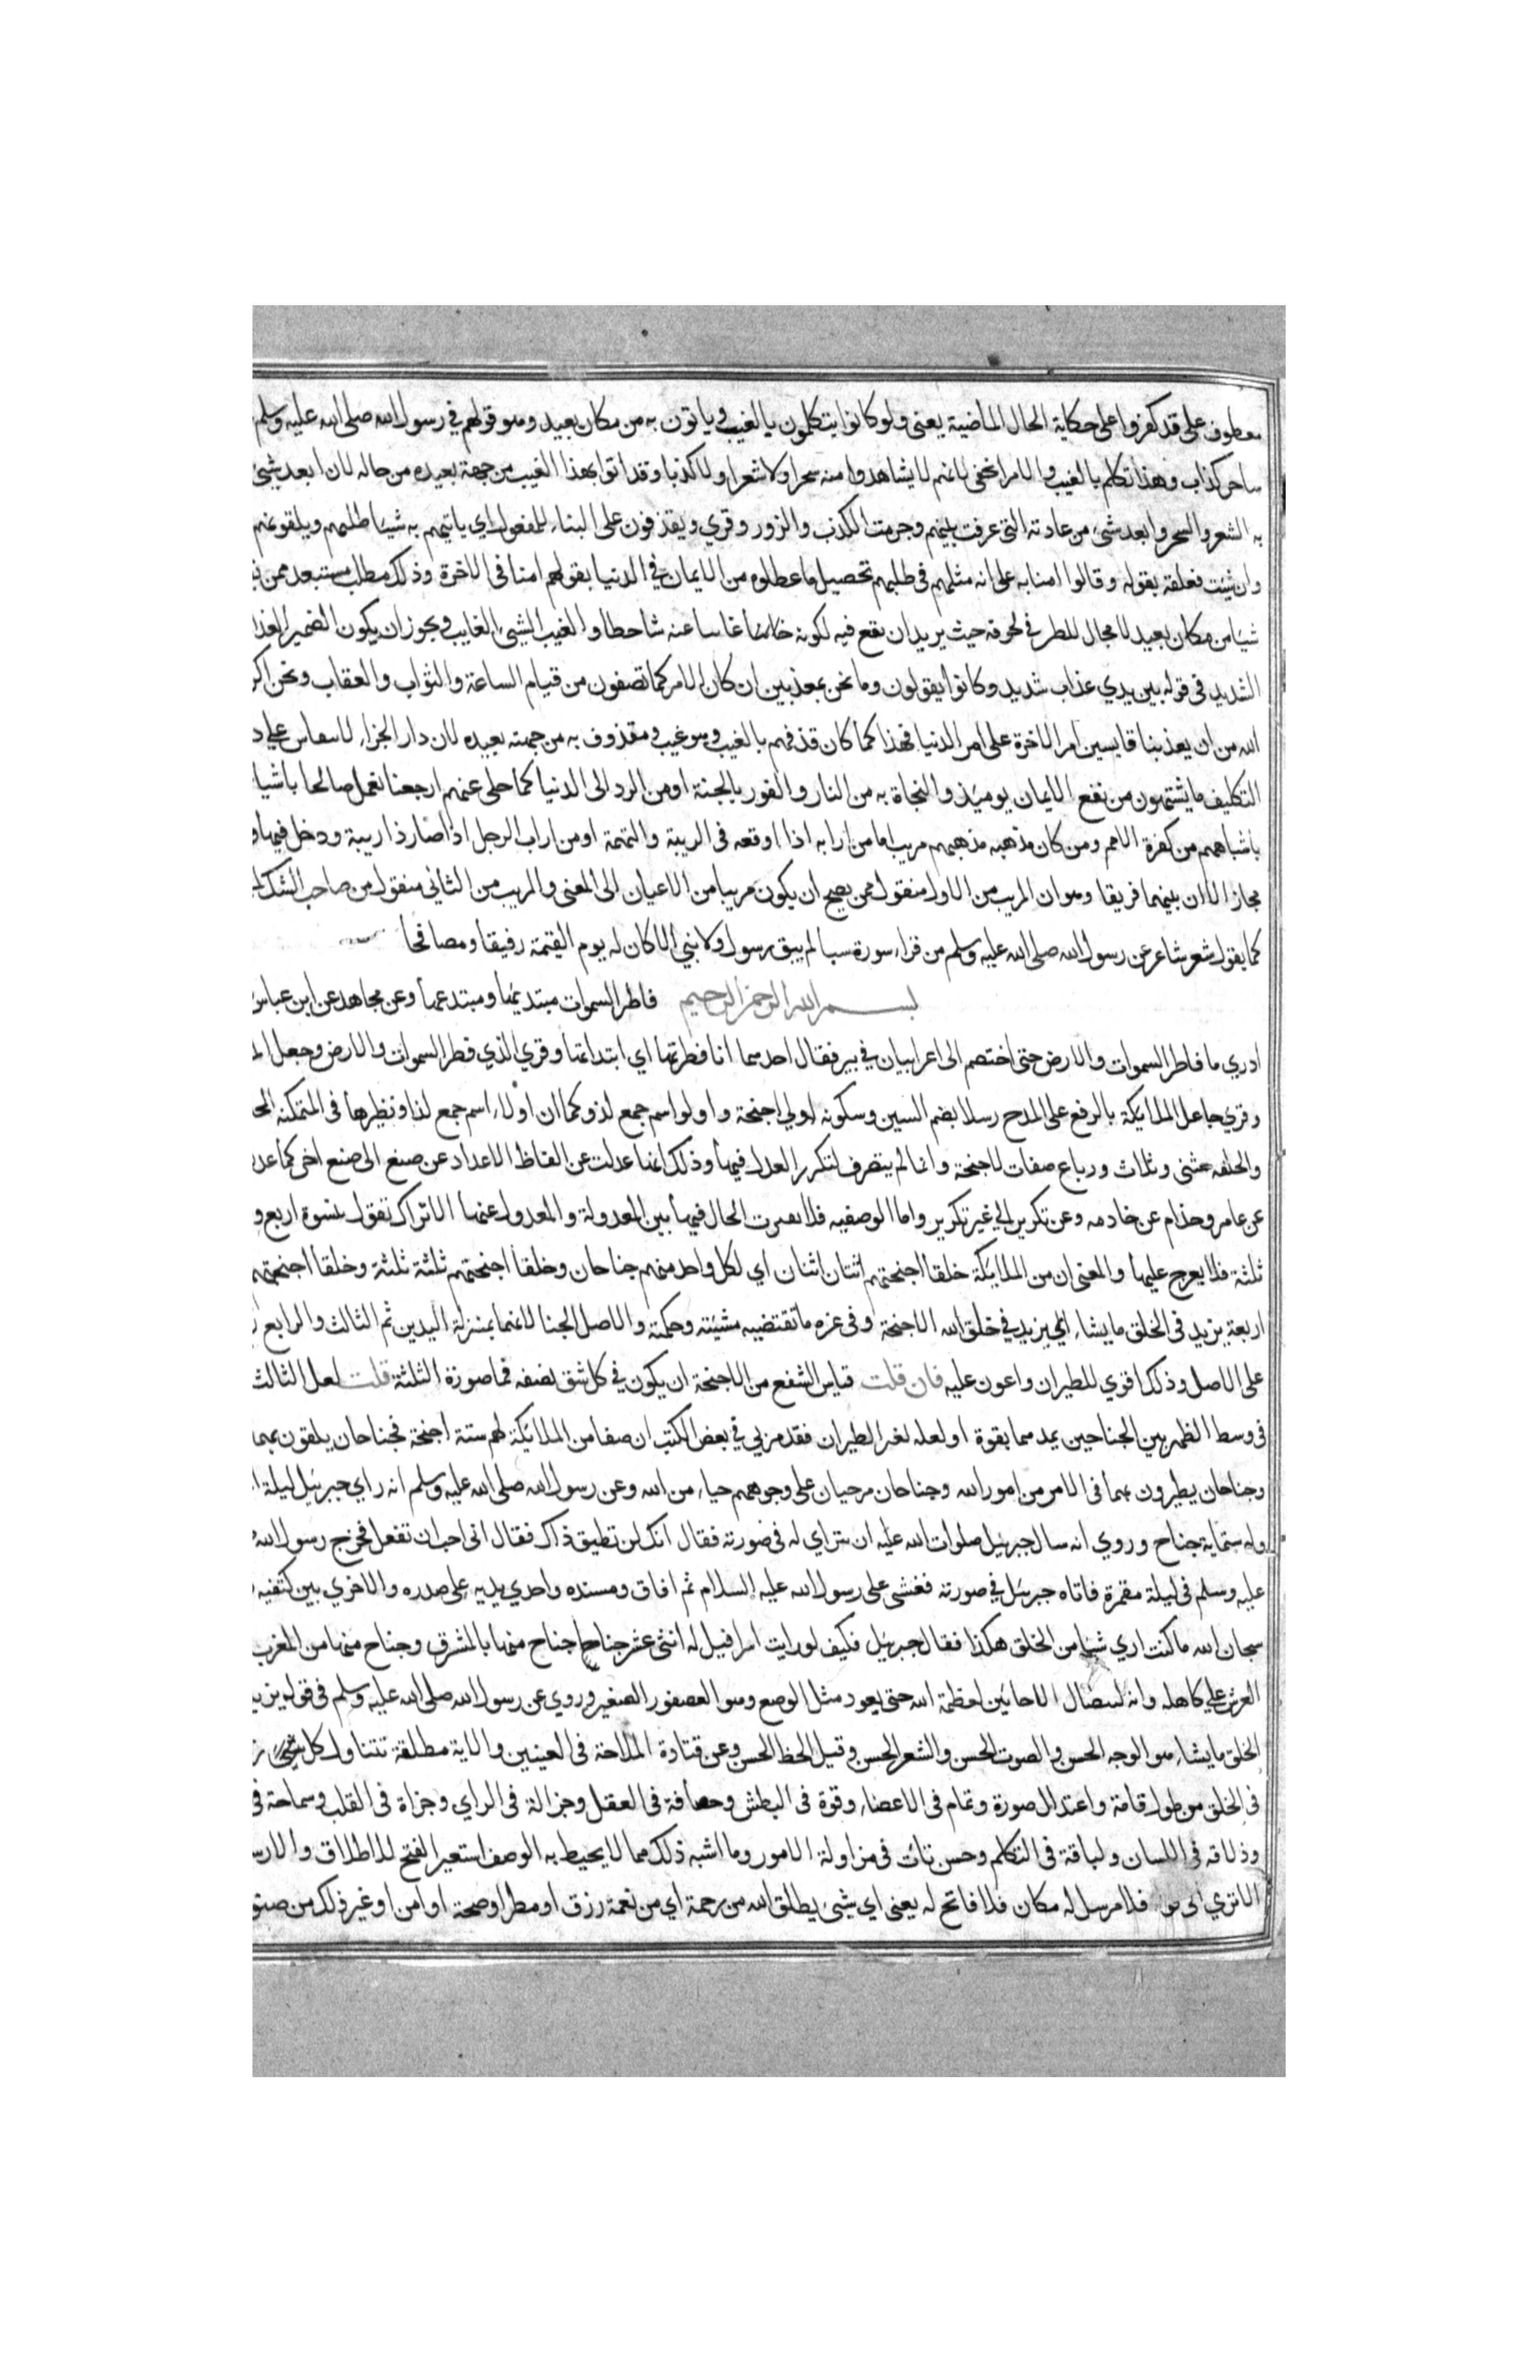 معطوف على قد كفروا على حكاية الحال الماضية يعنى ولو كانوا يتكلمون بالغيب وياتون به من مكان بعيد وهو قولهم في رسول الله صلى الله عليه وسلم
ساحر كذاب وهذا تكلم بالغيب والامر الخفى لانهم لا يشاهدوا منه سحرا ولا شعرا ولا كذبا وقد اتوا بهذا الغيب من جهة بعيده من حاله لان ابعد شئ
به الشعر والسحر وابعد شئ من عادته التي عرفت بينهم وجربت الكذب والزور وقري ويقذفون على البناء للمفعول اي ياتيهم به شياطينهم ويلقونهم
وان شئت فعلقه بقوله وقالوا امنا به على انه مثلهم في طلبهم تحصيل ما عطلوه من الايمان في الدنيا بقولهم امنا في الاخرة وذلك مطلب مستبعد ممن
شيا من مكان بعيد لا مجال للظر في لحوقه حيث يريد ان يقع فيه لكونه غايبا عنه شاحطا والغيب الشئ الغايب ويجوز ان يكون الضمير
الشديد في قوله بين يدي عذاب شديد وكانوا يقولون وما نحن بمعذبين ان كان الامر كما تصفون من قيام الساعة والثواب والعقاب ونحن
الله من ان يعذبنا قايسين امر الاخرة على امر الدنيا فهذا كما كان قذفهم بالغيب وهو غيب ومقذوف به من جهة بعيده لان دار الجزاء لا على
التكليف ما يشتهون من نفع الايمان يوميذ والنجاة به من النار والفوز بالجنة او من الرد الى الدنيا كما حكى عنهم ارجعنا نعمل صالحا
باشباههم من كفرة الامم ومن كان مذهبه مذهبهم مريب اما من ارابه اذا اوقعه في الريبة والتهمة او من اراب الرجل اذا صار ذا ريبة ودخل فيها
مجاز الا ان بينهما فريقا وهو ان المريب من الاول منقول ممن يصح ان يكون مريبا من الاعيان الى المعنى والمريب من الثاني منقول من صاحب الشك
كما يقول شعر شاعر عن رسول الله صلى الله عليه وسلم من قراء سورة سبا لم يبق رسول ولا نبي الا كان له يوم القيمة رفيقا ومصافحا
بسم الله الرحمن الرحيم فاطر السموات مبتديها ومبتدعها وعن مجاهد عن ابن عباس
ادري ما فاطر السموات والارض حتى اختصم الى اعرابيان في بير فقال احدهما انا فطرتها اي ابتداتها وقري الذي فطر السموات والارض وجعل
وقري جاعل الملايكة بالرفع على المدح رسلا بضم السين وسكونه اولي اجنحة واولو اسم جمع لذو كما ان اولاء اسم جمع لذا ونظيرها في المتمكنة
والخلفه مثنى وثلاث ورباع صفات لاجنحة وانما لم ينصرف لتكرر العدل فيها وذلك انها عدلت عن الفاظ الاعداد عن صيغ الى صيغ اخر كما عدل
عن عامر وحذام عن حاذمه وعن تكرير الى غير تكرير واما الوصفيه فلا الحال فيها بين المعدولة والمعدول عنها الا تراك تقول بنسوة اربع و
ثلثة فلا يعرج عليها والمعنى ان من الملايكة خلقا اجنحتهم اثنان اثنان اي لكل واحد منهم جناحان وخلقا اجنحتهم ثلثة ثلثة وخلقا اجنحتهم
اربعة يزيد في الخلق ما يشاء اي يزيد في خلق الله الاجنحة وفي غيره ما تقتضيه مشيته وحكمته والاصل الجناحان لانهما بمنزلة اليدين ثم الثالث والرابع
على الاصل وذلك اقوى للطيران واعون عليه فان قلت قياس الشفع من الاجنحة ان يكون في كل شق نصفه فما صورة الثلثة قلت لعل الثالث
في وسط الظهر بين الجناحين يمدهما بقوة او لعله لغير الطيران فقد مر بي في بعض الكتب ان صفا من الملائكة لهم ستة اجنحة فجناحان يلفون بهما
وجناحان يطيرون بهما في الامر من امور الله وجناحان مرخيان على وجوههم حياء من الله وعن رسول الله صلى الله عليه وسلم انه راي جبرئيل ليلة
وله ستماية جناح وروي انه سال جبرئيل صلوات الله عليه ان يتراي له في صورته فقال انك لن تطيق ذاك فقال اني احب ان تفعل فخرج رسول الله
عليه وسلم في ليلة مقمرة فاتاه جبرئيل في صورته فغشى على رسول الله عليه السلام ثم افاق ومسنده واحدي يديه على صدره والاخري بين كتفيه
سبحان الله ما كنت اري شيا من الخلق هكذا فقال جبرئيل فكيف لو رايت اسرافيل له اثنى عشر جناحا جناح منها بالمشرق وجناح منها من المغرب
العرش على كاهله وانه ليتضال الاحايين لعظمة الله حتى يعود مثل الوصع وهو العصفور الصغير وروي عن رسول الله صلى الله عليه وسلم في قوله يزيد
الخلق ما يشاء هو الوجه الحسن والصوت الحسن والشعر الحسن وقيل الخط الحسن وعن قتادة الملاحة في العينين والاية مطلقة تتناول كل
في الخلق من طول قامة واعتدال صورة وتمام في الاعضاء وقوة في البطش وحصافة في العقل وجزالة في الراي وجراة في القلب وسماحة في
وذلاقه في اللسان ولباقة في التكلم وحسن تات في مزاولة الامور وما اشبه ذلك مما لا يحيط به الوصف استعير الفتح للاطلاق والارسال
الا تري الى فلا مرسل له مكان فلا فاتح له يعنى اي شئ يطلق الله من رحمة اي من نعمة رزق او مطر او صحة او امن او غير ذلك من